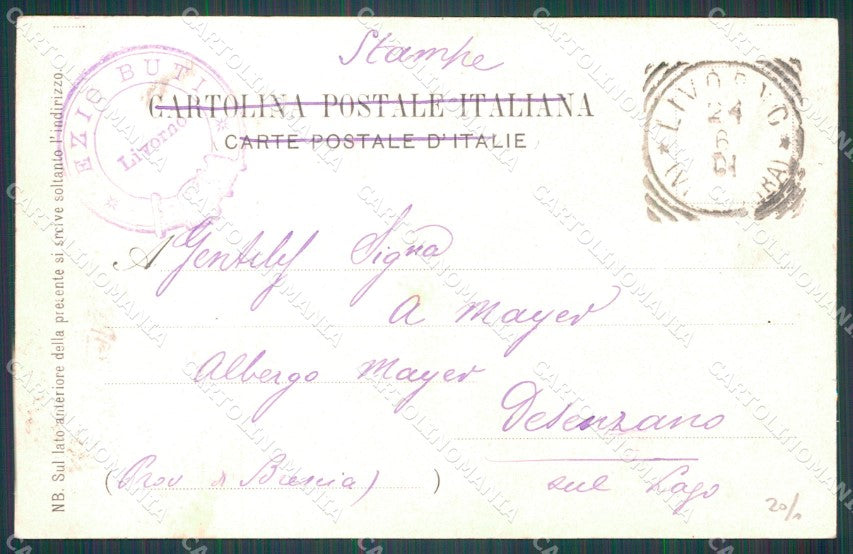 Stampe
CARTOLINA POSTALE ITALIANA
CARTE POSTALE D'ITALIE
EZIO BUTI
Livorno
LIVORNO
NB. Sul lato anteriore della presente si srcive soltanto l'indirizzo.
A Gentilᵉ Sigⁿᵃ
A Mayer
Albergo Mayer
Desenzano
sul Lago
(Prov di Brescia)
20/
CARTOLINOMANIA